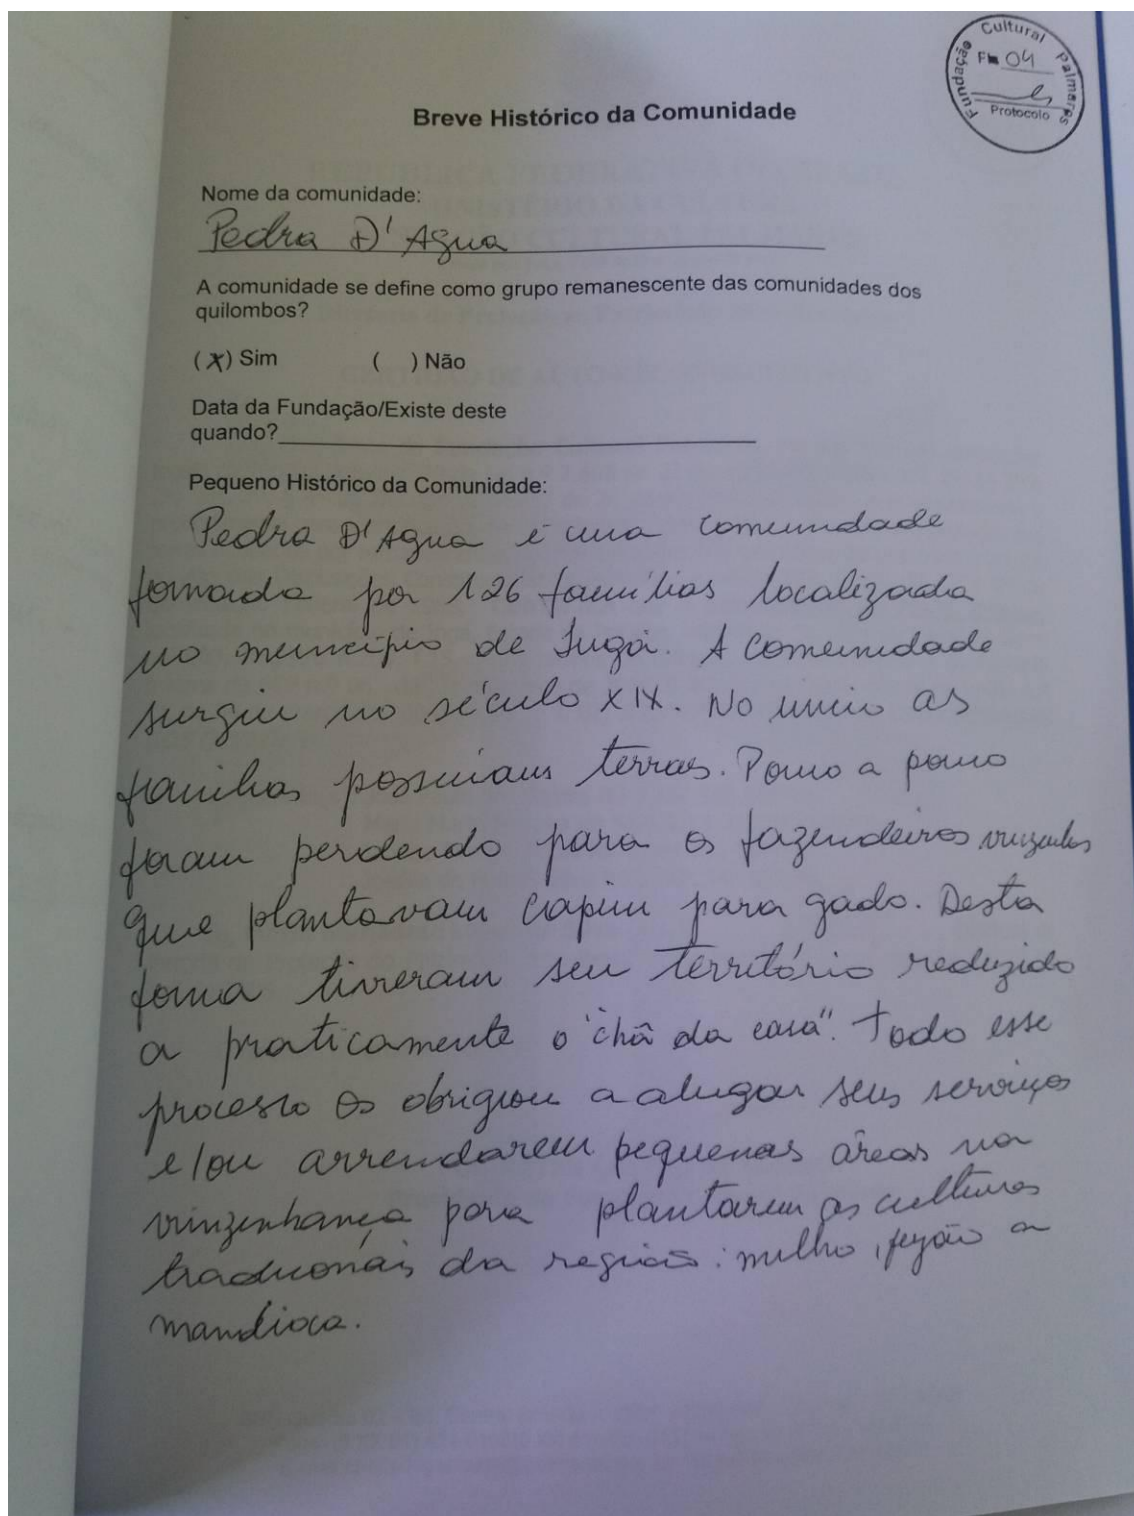 Fundação Cultural Palmares
Fls 04
Protocolo
Breve Histórico da Comunidade
Nome da comunidade:
Pedra D'Agua
A comunidade se define como grupo remanescente das comunidades dos
quilombos?
(x) Sim ( ) Não
Data da Fundação/Existe deste
quando?
Pequeno Histórico da Comunidade:
Pedra D'Agua é uma comunidade
formada por 126 famílias localizada
no município de Ingá. A comunidade
surgiu no século XIX. No inicio as
famílias possuiam terras. Pouco a pouco
foram perdendo para os fazendeiros
que plantavam capim para gado. Desta
forma tiveram seu território reduzido
a praticamente o "chã da casa". Todo esse
processo os obrigou a alugar seus serviços
e/ou arrendarem pequenas áreas na
vinzenhança para plantarem as culturas
tradicionais da região: milho, feijão a
mandioca.